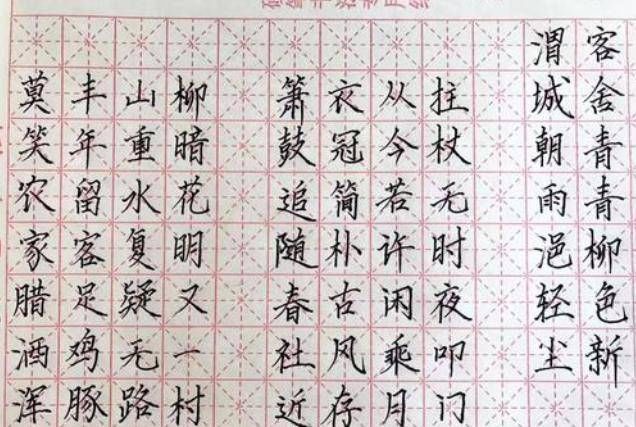 莫笑农家腊酒浑
丰年留客足鸡豚
山重水复疑无路
柳暗花明又一村
箫鼓追随春社近
衣冠简朴古风存
从今若许闲乘月
拄杖无时夜叩门
渭城朝雨浥轻尘
客舍青青柳色新